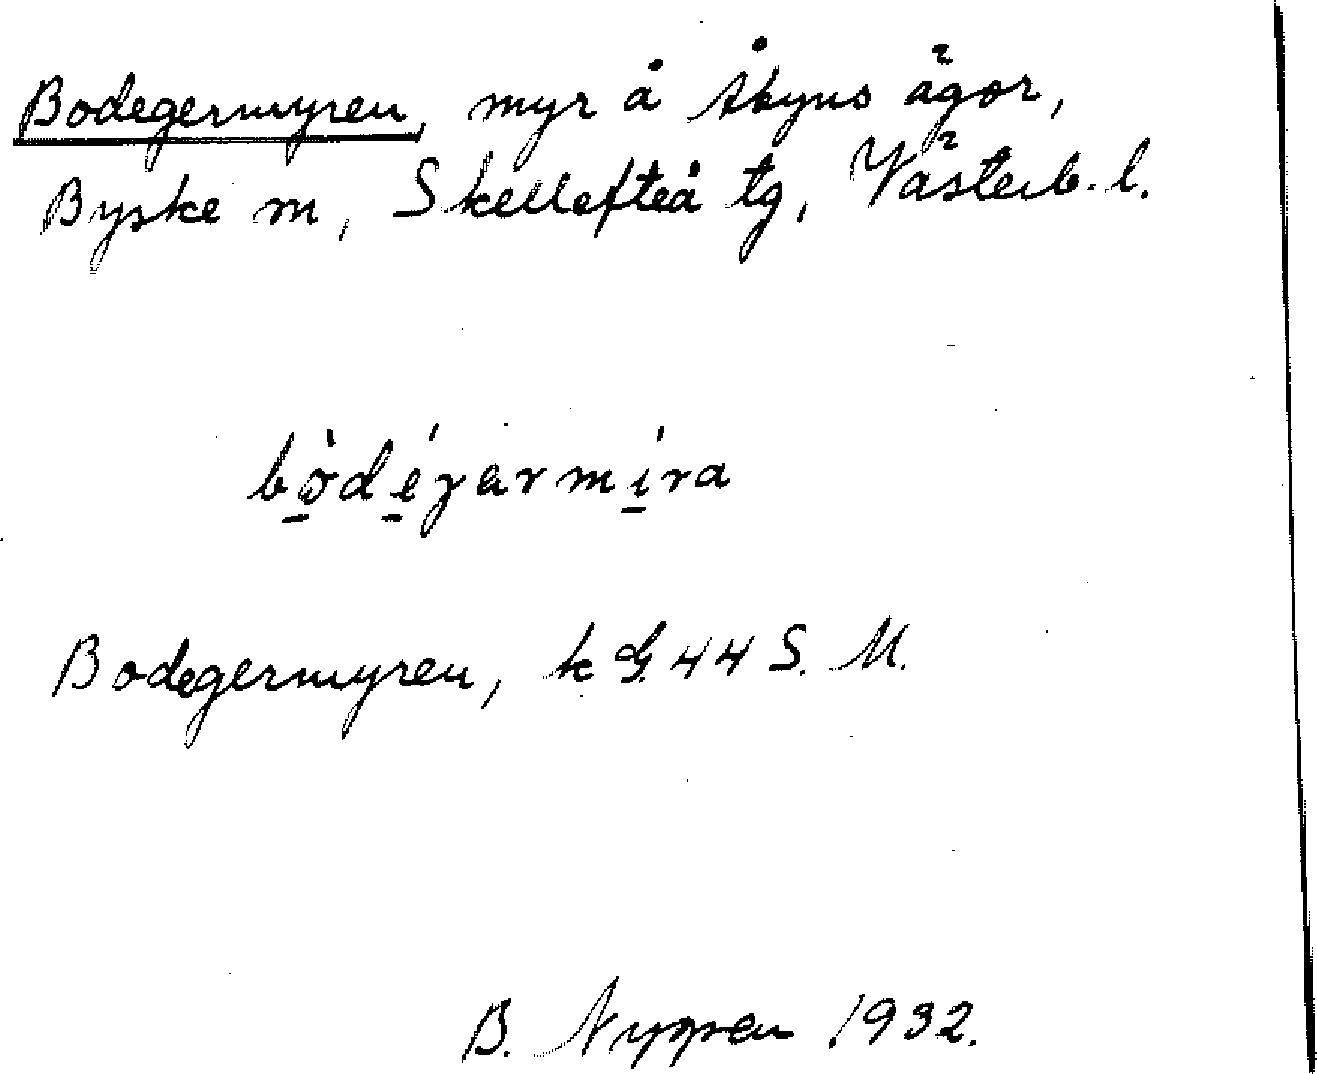 Bodegermyren, myr å Åbyns ägor,
Byske sn, Skellefteå tg, Västerb. l.
bò̱dé̱garmí̱ra
Bodegermyren, k G. 44 S. M.
B. 1932.